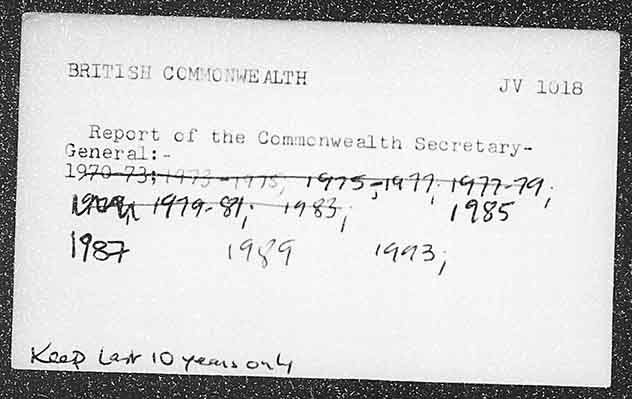 BRITISH COMMONWEALTH
JV 1018
Report of the Commonwealth Secretary-
General:-
1970-73; 1973-1975; 1975-1977; 1977-79;
1979-81; 1983; 1985
1987 1989 1993;
Keep last 10 years only